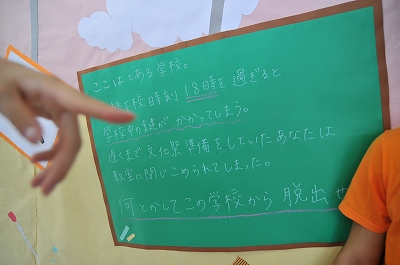 ここはとある学校。
校時刻18時を過ぎると
学校中の鍵がかかってしまう。
遅くまで文化祭準備をしていたあなたは
教室に閉じこめられてしまった。
何とかしてこの学校から脱出せ